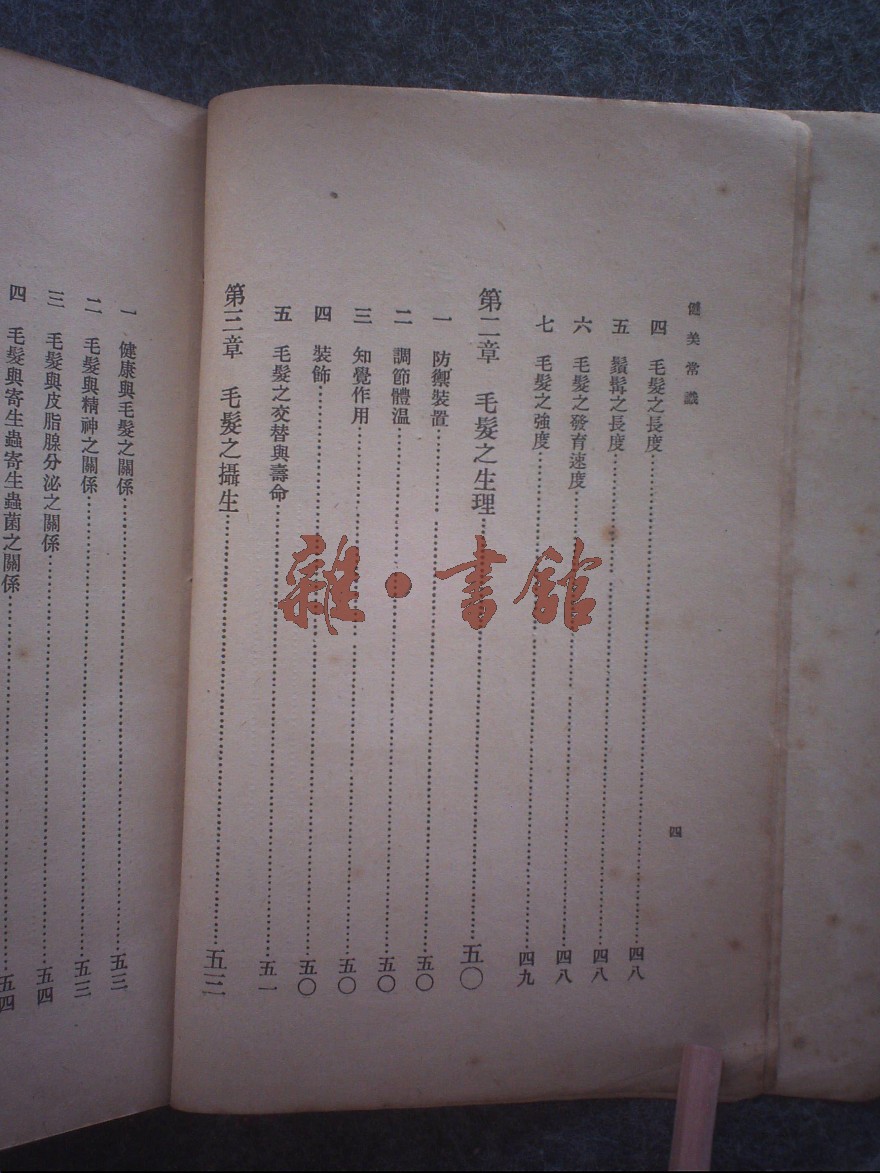 健美常識
四
四 毛髮之長度……四八
五 鬚髯之長度……四八
六 毛髮之發育速度……四八
七 毛髮之強度……四九
第二章 毛髮之生理……五〇
一 防禦裝置……五〇
二 調節體温……五〇
三 知覺作用……五〇
四 裝飾……五〇
五 毛髮之交替與壽命……五一
第三章 毛髮之攝生……五三
一 健康與毛髮之關係……五三
二 毛髮與精神之關係……五三
三 毛髮與皮脂腺分泌之關係……五四
四 毛髮與寄生蟲寄生蟲菌之關係……五四
雜·書館